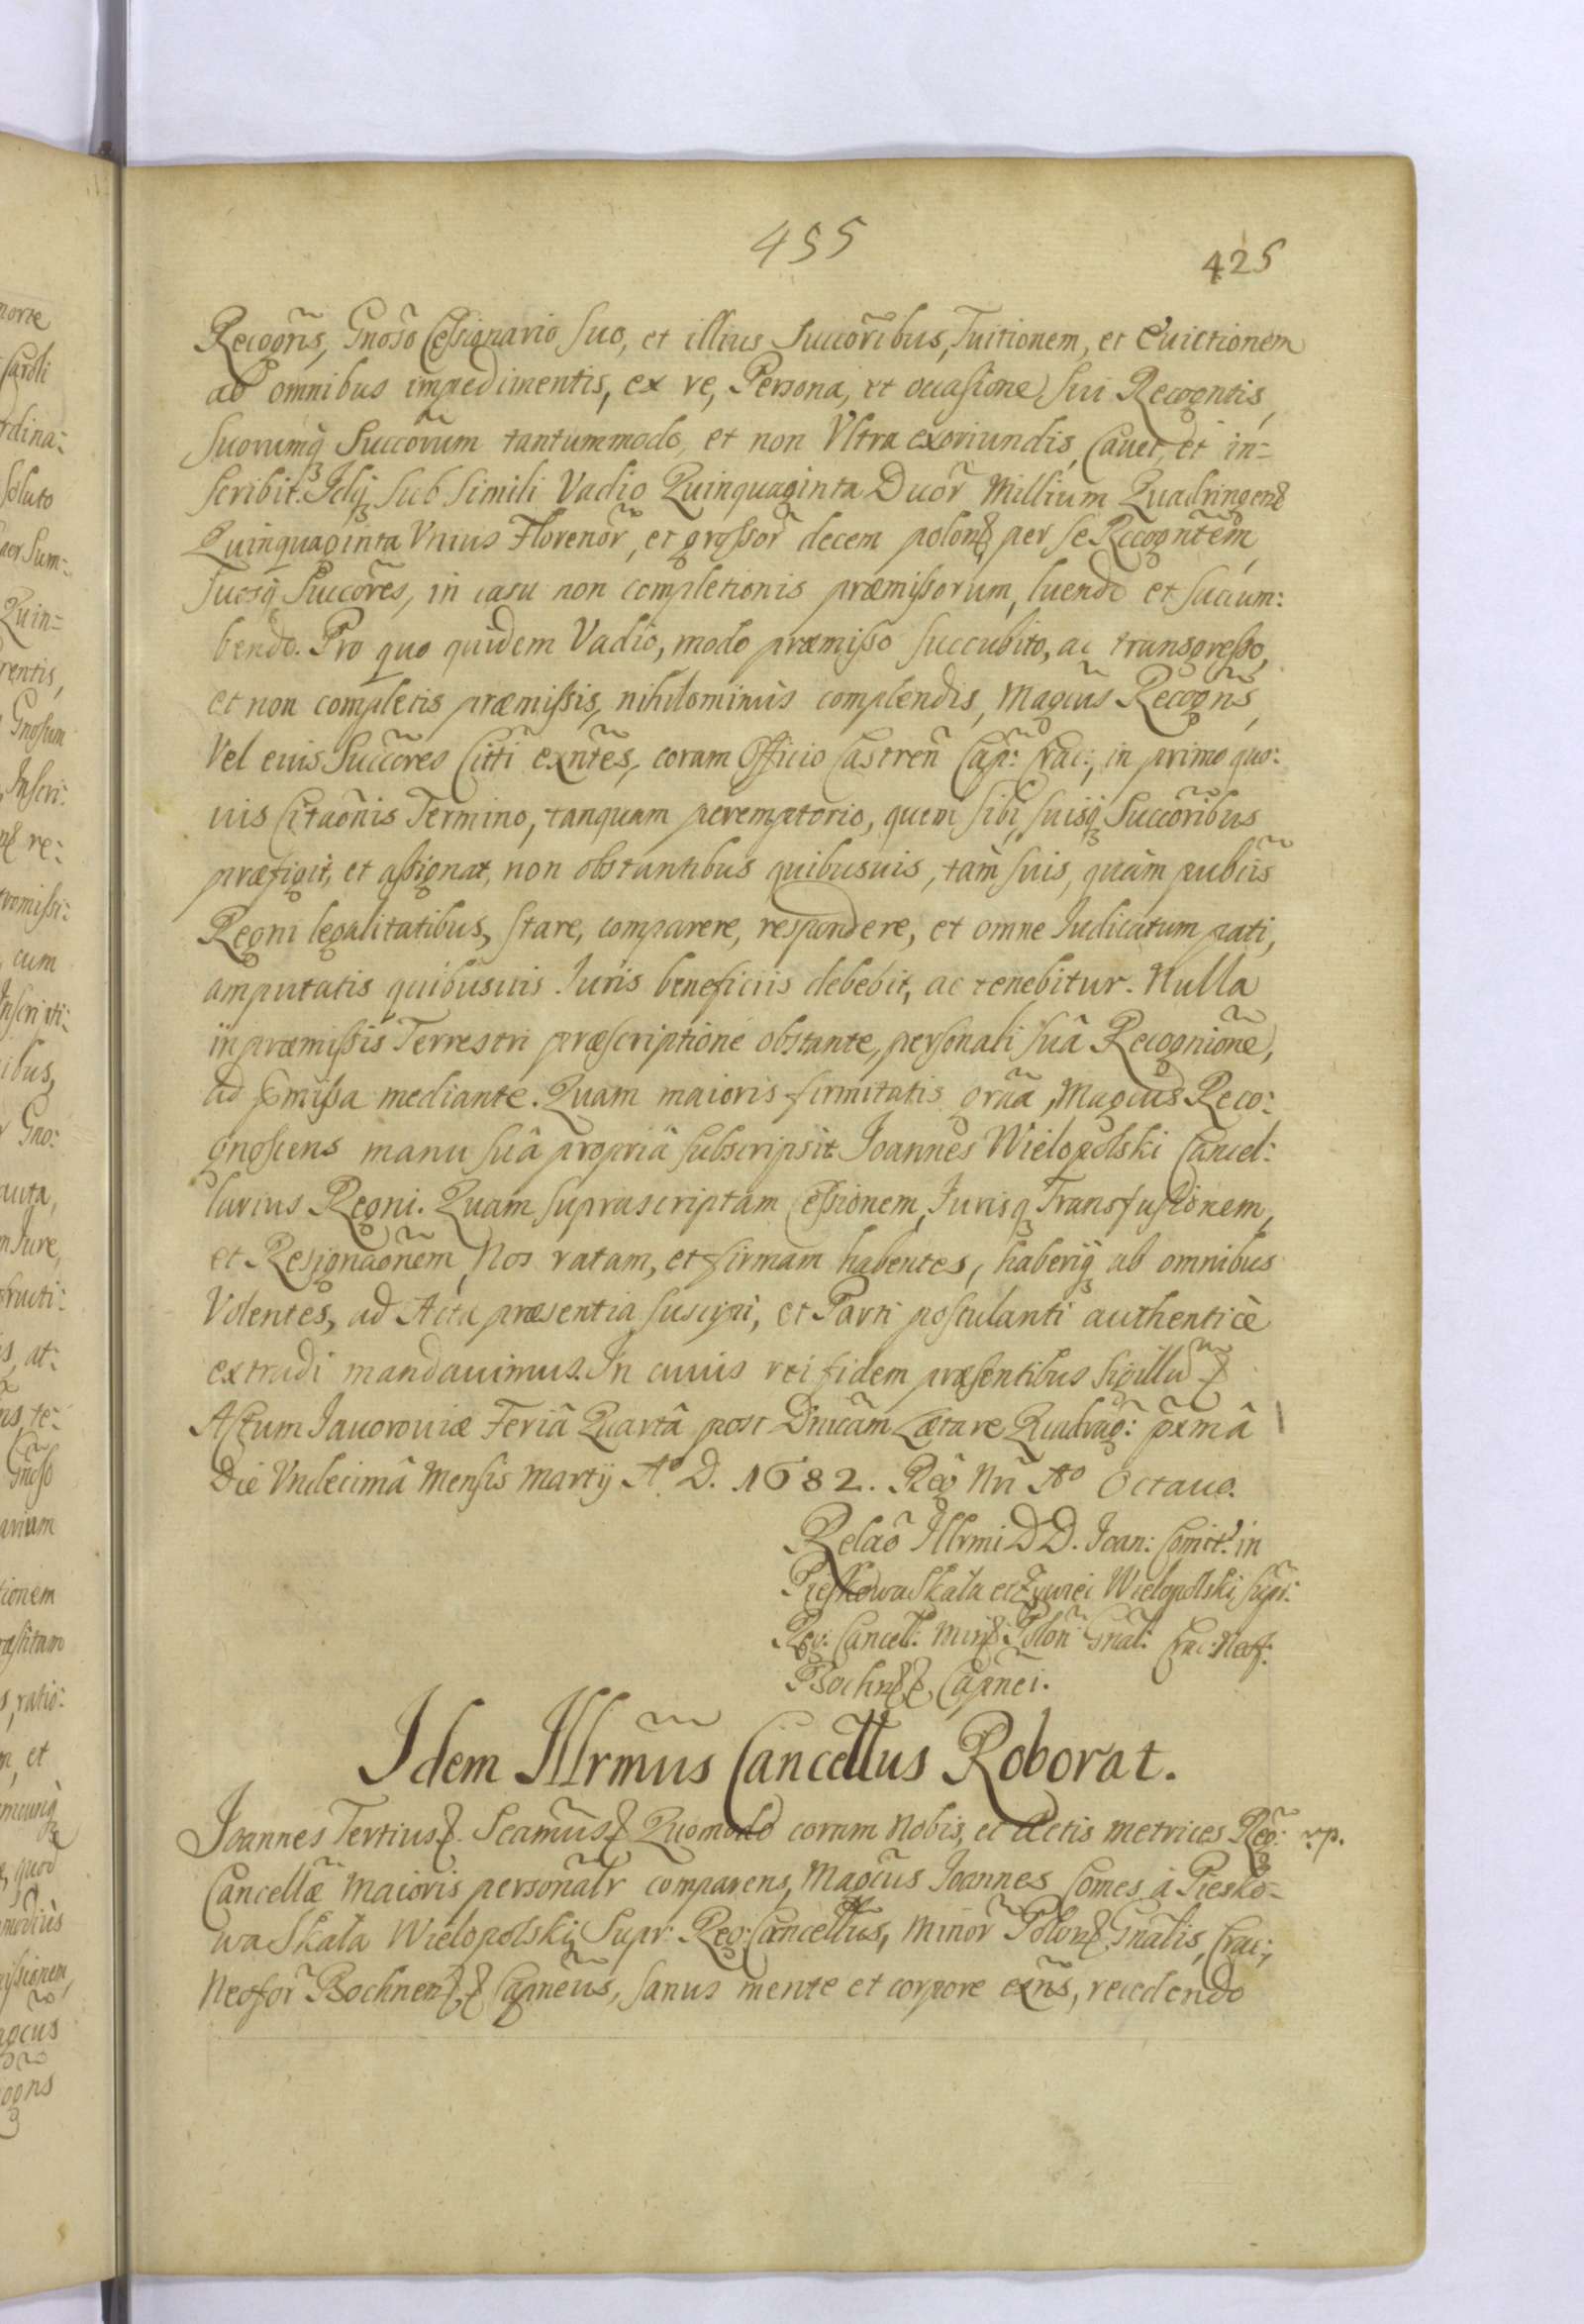 455
425
Recogñs, Gnoso Cessionario suo, et illius Succoribus, Tuitionem, et Euictionem
ab omnibus impedimentis, ex re, Persona, et occasione sui Recogntis,
suorumq3 Succorum tantummodo, et non Vltra exoriundis, Cauet, et in=
scribit. Idq3 sub simili Vadio Quinquaginta Duor Millium Quadringen
Quinquaginta Vnius Florenor, et grossor decem polon per se Recogntem,
suosq3 Succores, in casu non completionis præmissorum, luendo et succum:
bendo. Pro quo quidem Vadio, modo præmisso succubito, ac transgresso,
et non completis præmissis, nihilominùs complendis, Magcus Recogns,
Vel euis Succores Citti exntes, coram Officio Castren Cap: Crac:, in primo quo:
uis Citaonis Termino, tanquam peremptorio, quem sibi, suisq3 Succoribus
præfigit, et assignat, non obstantibus quibusuis, tam suis, quàm publiis
Regni legalitatibus, stare, comparere, respondere, et omne Iudicatum pati,
amputatis quibusuis Iuris beneficiis debebit, ac tenebitur. Nulla
in præmissis Terrestri præscriptione obstante, personali suâ Recognione,
ad præmissa mediante. Quam maioris firmitatis gräa, Magcus Reco:
gnoscens manu suâ propriâ subscripsit Joannes Wielopolski Cancel:
larius Regni. Quam suprascriptam Cessionem, Iurisq3 Transfusionem,
et Resignaonem, Nos ratam, et firmam habentes, haberiq3 ab omnibus
Volentes, ad Acta præsentia suscipi, et Parti postulanti authenticè
extradi mandauimus. In cuius rei fidem præsentibus sigillu
Actum Iauorouiæ Feriâ Quartâ post Dnicam Lætare Quadrag: pxmâ
Die Vndecimâ Mensis Martij Aº D. 1682. Reg Nri Aº Octauo.
Relaõ Illrmi D D. Joan: Comit: in
Pieskowa Skała et Zywiei Wielopolski supr:
Reg: Cancell: Min: Polon Gnal: Crac: Neof:
Bochn Capnei.
Idem Illrmus Cancellus Roborat.
Joannes Tertius. Scamus Quomodo coram Nobis, et Actis Metrices Reg: rp.
Cancellæ Maioris personalr comparens, Magcus Joannes Comes à Piesko=
wa Skała Wielopolski, Supr: Reg: Cancellus, Minor Polon Gnalis, Crac:,
Neofor Bochnen Capneus, sanus mente et corpore exns, recedendo